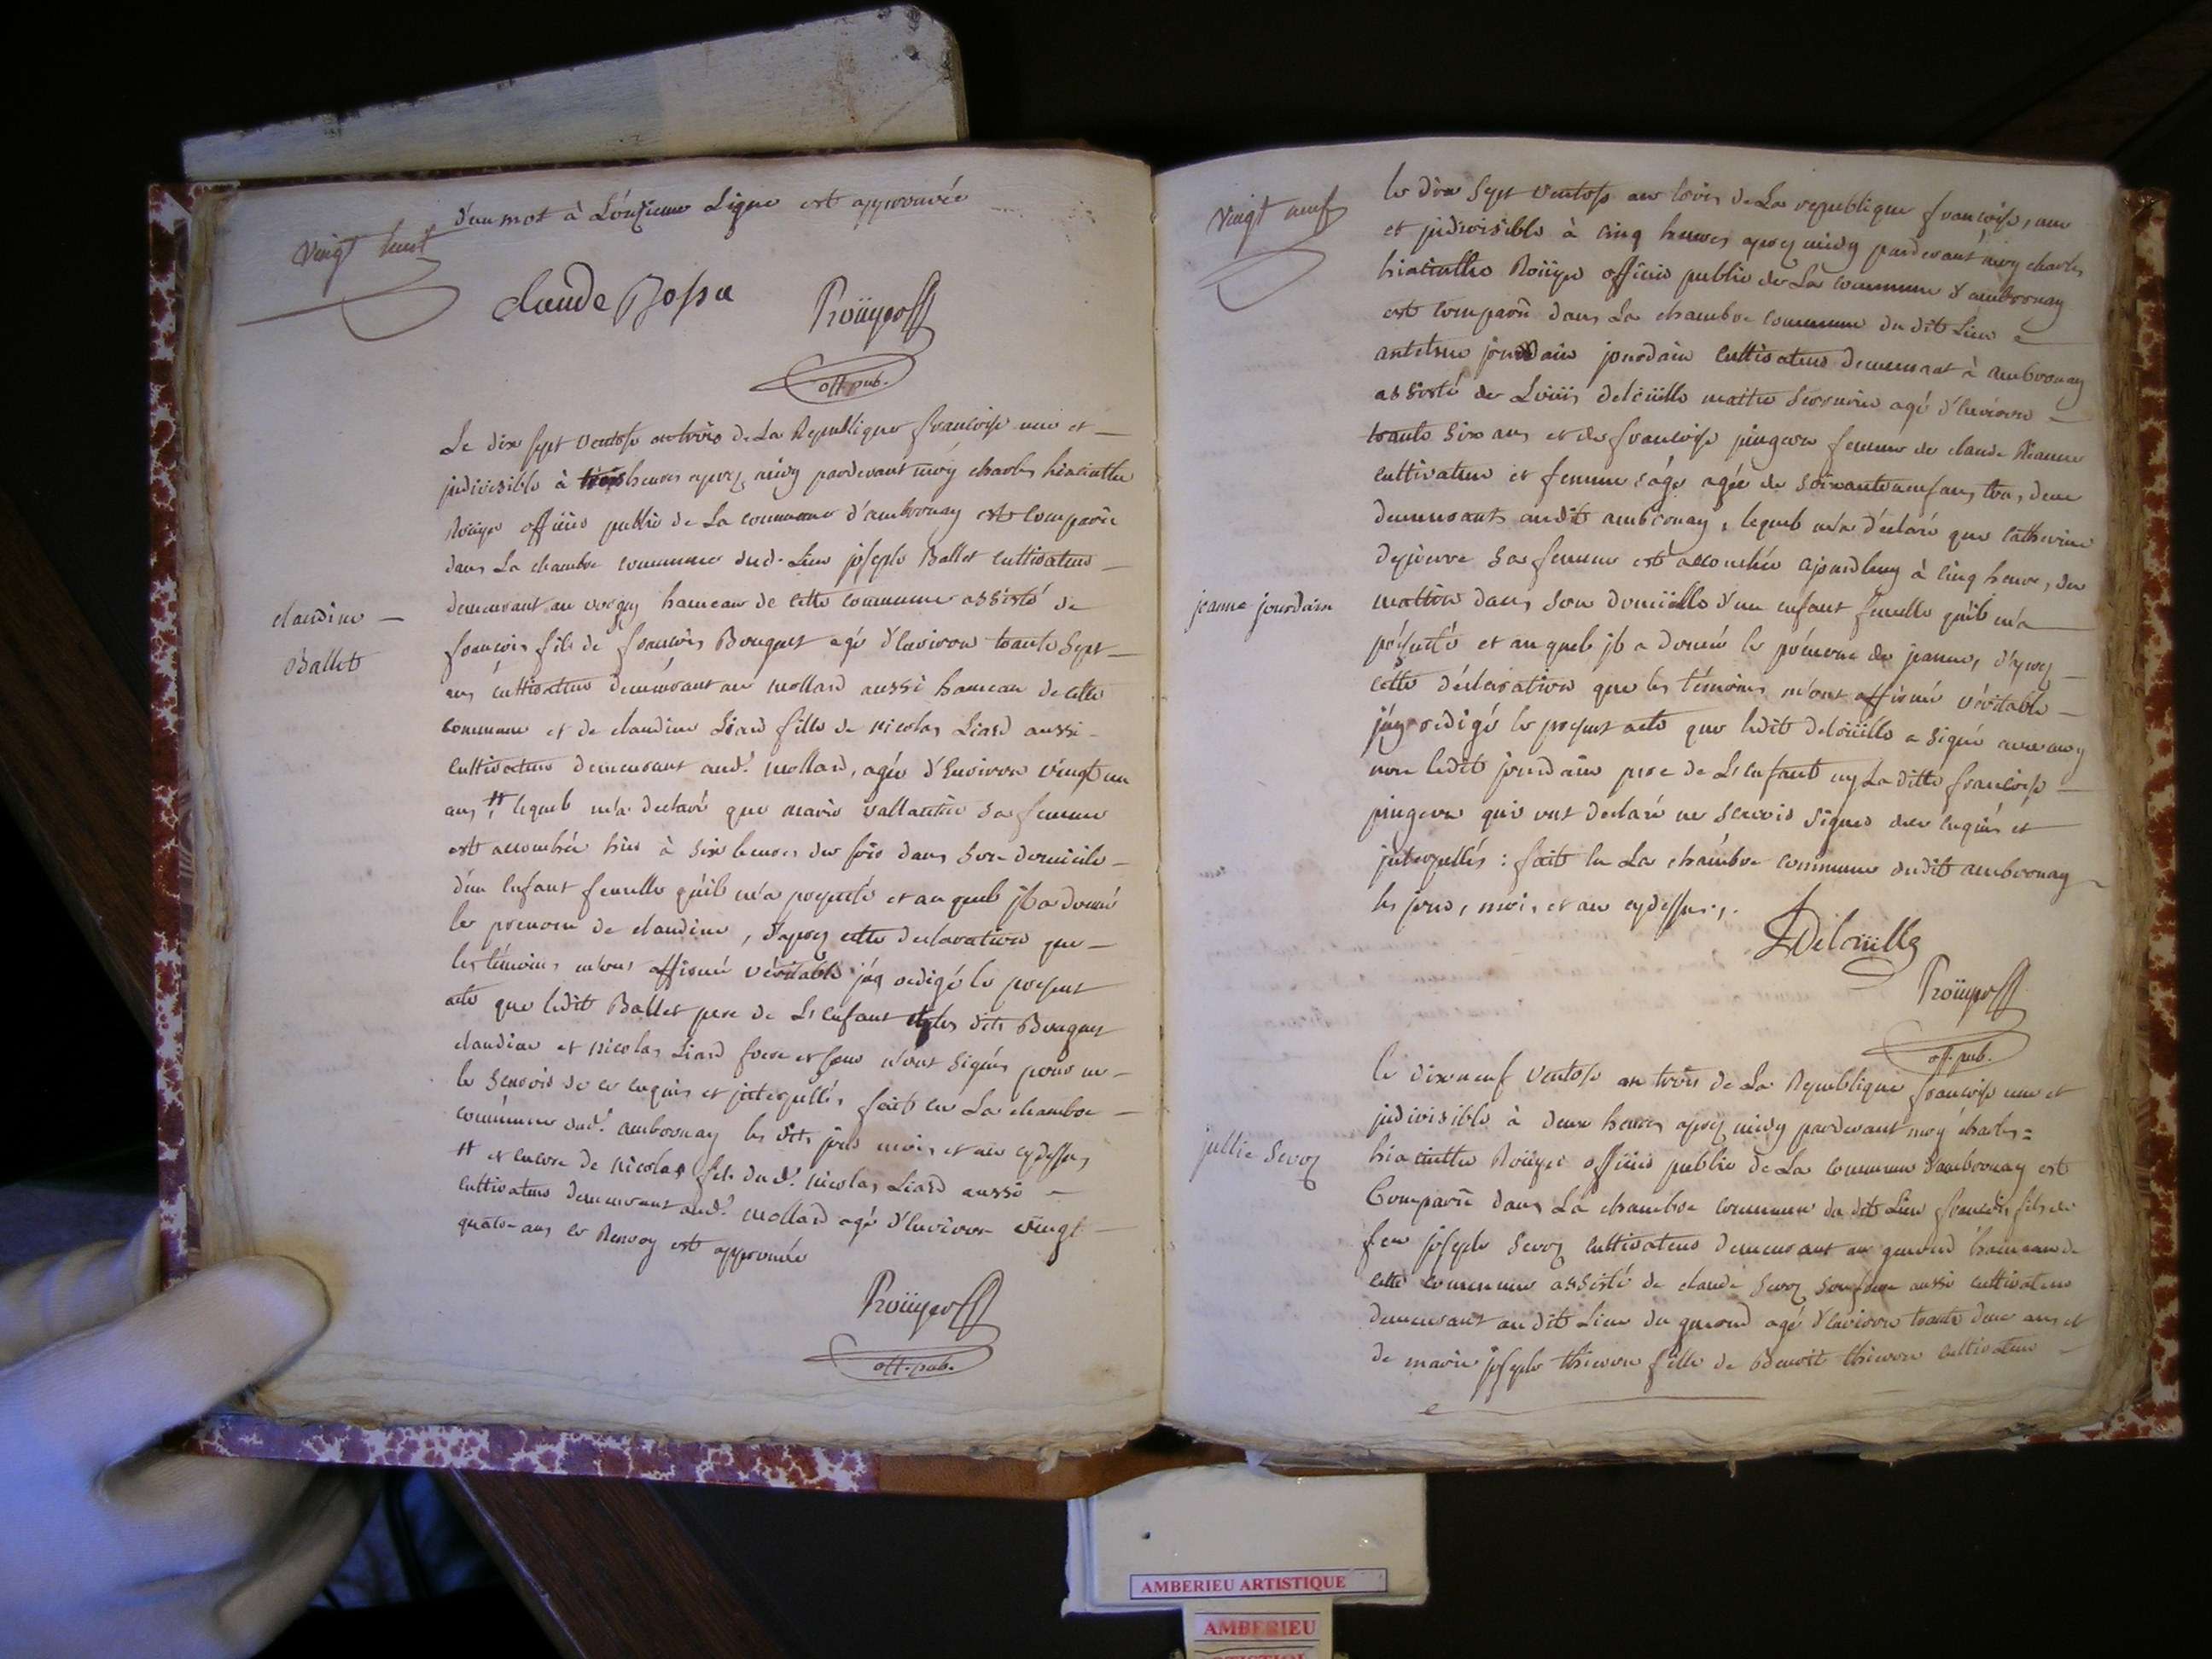 vingt huit
d'un mot à L'onzieme Ligne est approuvée
claude Bossu Roüyer off
off. pub.
Le dix sept ventose an trois de La Republique francoise une et
jndivisible à trois heures aprez midy pardevant moy charles hiacinthe
Roüyer officier public de La commune d'ambronay est comparu
dans La chambre commune dud. Lieu joseph Ballet cultivateur
demeurant au vorgey hameau de cette commune assisté de
claudine
Ballet
francois fils de francois Bouquet agé d'Environ trante sept
ans cultivateur demeurant au mollard aussi hameau de cette
commune et de claudine Liard fille de nicolas Liard aussi
cultivateur demeurant aud. mollard, agée d'Environ vingt un
ans # lequel m'a declaré que marie vallantin sa femme
est accouchée hier à six heures du soir dans son domicile
d'un Enfant femelle qu'il m'a presenté et au quel jl a donné
le prenom de claudine, d'aprez cette declaration que
les témoins m'ont affirmé véritable j'ay redigé le present
acte que ledit Ballet pere de L'enfant et les dits Bouquet
claudine et nicolas Liard frere et soeur n'ont signés pour ne
le scavoir de ce enquis et jnterpellés fait en La chambre
commune dud. ambronay les dits jour mois et an cydessus
# et encore de nicolas fils dud. nicolas Liard aussi
cultivateur demeurant aud. mollard agé d'Environ vingt
quatre ans ce Renvoy est approuvée
Roüyer off
off. pub.
vingt neuf
le dix sept ventose an trois de La republique francoise, une
et jndivisible à cinq heures aprez midy pardevant moy charles
hiacinthe Roüyer officier public de La commune d'ambronay
est comparu dans La chambre commune du dit Lieu
jourdain cultivateur demeurant à ambronay
assisté de Loüis Deloüille maitre serrurier agé d'Environ
trante six ans et de francoise pingeon femme de claude
cultivateur et femme sage agée de soixante neuf ans, tous deux
demeurants audit ambronay, lequel m'a déclaré que catherine
depierre sa femme est accouchée ajourdhuy à cinq heures du
jeanne jourdain
mattin dans son domicille d'un enfant femelle qu'il m'a
présenté et au quel jl a donné le prénom de jeanne, d'aprez
cette déclaration que les témoins m'ont affirmé véritable
j'ay redigé le present acte que ledit deloüille a signé avec moy
non ledit jourdain pere de L'enfant ny La ditte francoise
pingeon qui ont declaré ne scavoir signer de ce enquis et
jnterpellés : fait en La chambre commune dudit ambronay
les jour, mois et an cydessus.
LDeloüille
Roüyer off
off. pub.
le dix neuf ventose an trois de La Republique francoise une et
jndivisible à deux heures aprez midy pardevant moy charles=
jullie Sevoz
hiacinthe Roüyer officier public de La commune d'ambronay est
Comparu dans La chambre commune du dit Lieu francois fils de
feu joseph Sevoz cultivateur demeurant au genoud hameau de
cette commune assisté de claude Sevoz son frere aussi cultivateur
demeurant audit Lieu du genoud agé d'Environ trante deux ans et
de marie joseph thievon fille de Benoit thievon cultivateur
AMBERIEU ARTISTIQUE
AMBERIEU
ARTISTIQUE